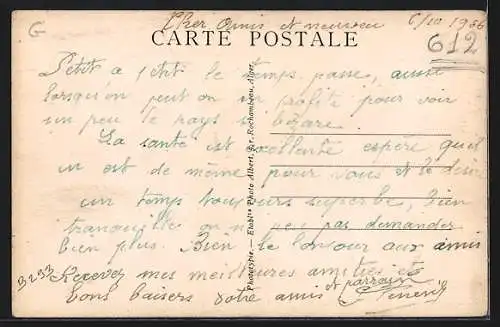 G
Cher amis et neuveu 6/10 1936
CARTE POSTALE
612
Petit a petit le temps passe, aussi
lorsqu'on peut on en profite pour voir
un peu le pays si bizare.
La santé est exellente espère qu'il
en est de même pour vous et le désire
un temps toujours superbe, bien
tranquille on ne peu pas demander
bien plus. Bien le bonjour aux amis
Recevez mes meilleures amitiés et
bons baisers votre amis et parrain
B233
Photographie. — Etablts Photo Albert, Rochambeau, Alger.